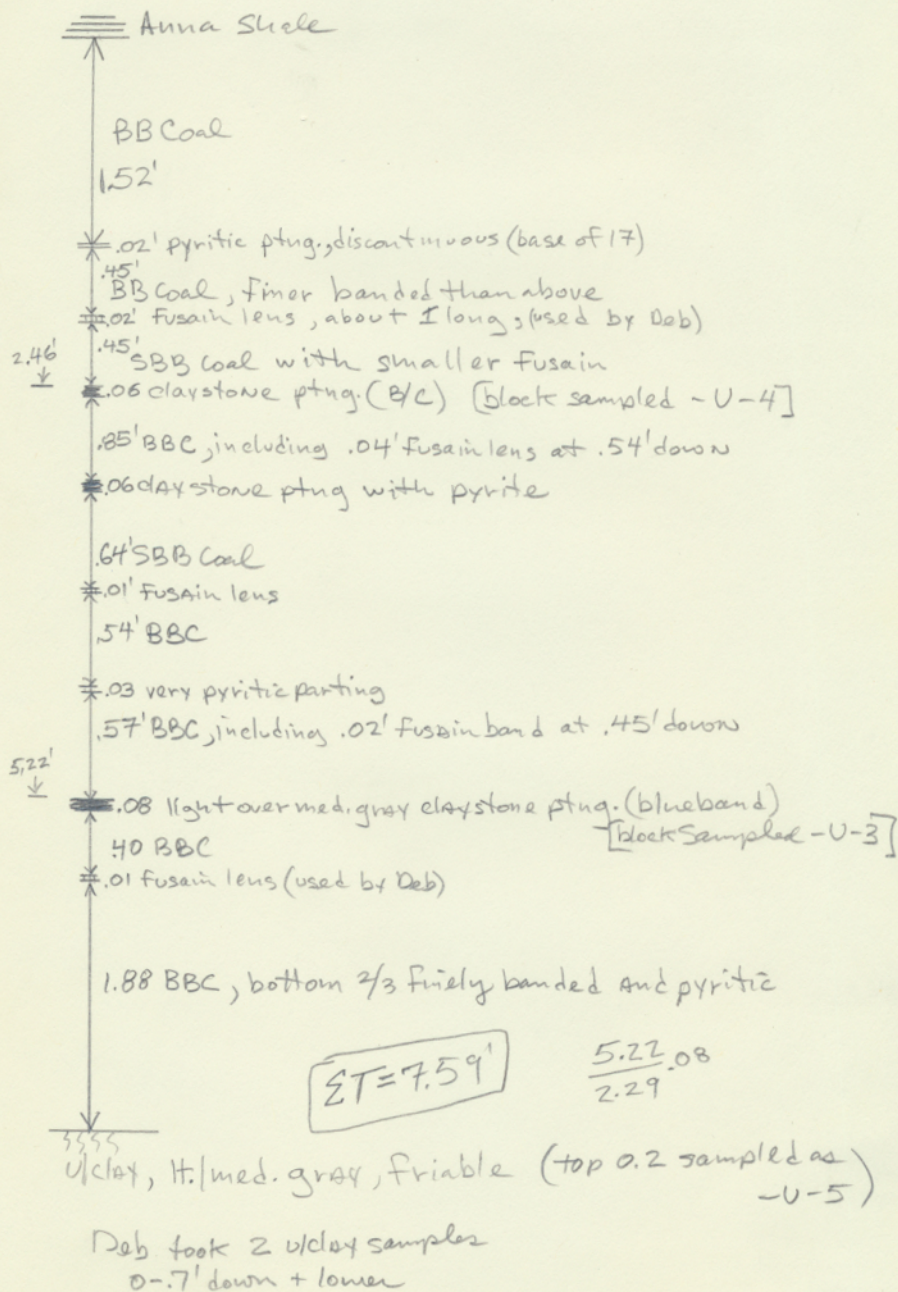 Anna Shale
BB Coal
1.52'
.02' pyritic ptng., discontinuous (base of 17)
.45'
BB Coal, finer banded than above
.02' fusain lens, about 1 long, (used by Deb)
2.46'
.45' SBB coal with smaller fusain
.06 claystone ptng. (B/C) [block sampled - U-4]
.85' BBC, including .04' fusain lens at .54' down
.06 claystone ptng with pyrite
.64' SBB Coal
.01' fusain lens
.54' BBC
.03 very pyritic parting
.57' BBC, including .02' fusain band at .45' down
5.22'
.08 light over med. gray claystone ptng. (blueband)
[block Sampled - U-3]
.40 BBC
.01 fusain lens (used by Deb)
1.88 BBC, bottom 2/3 finely banded and pyritic
ΣT=7.59'
5.22
.08
2.29
U/clay, lt./med. gray, friable (top 0.2 sampled as
-U-5)
Deb took 2 u/clay samples
0-.7' down + lower